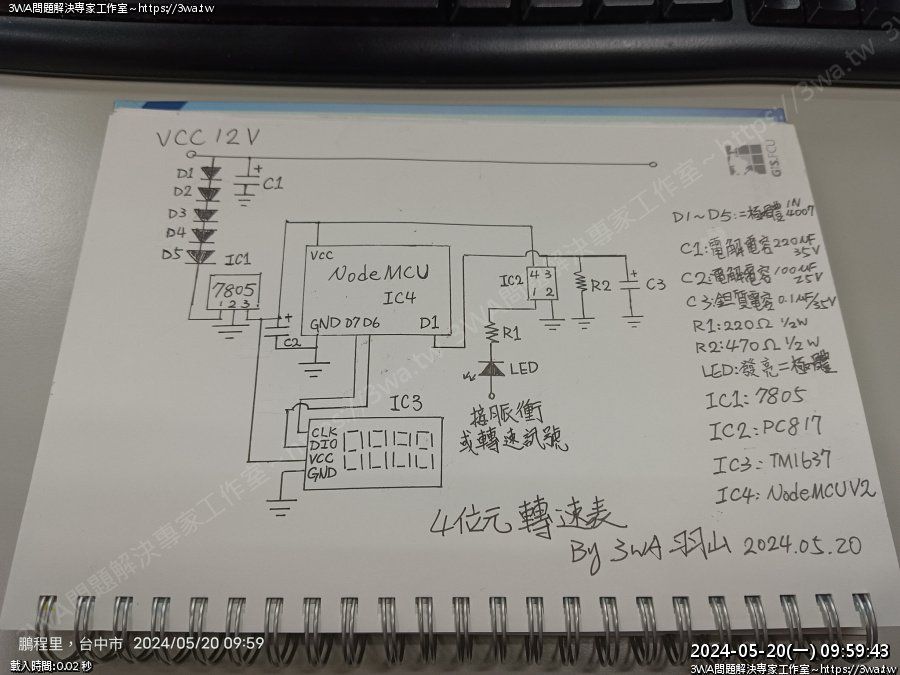 3WA問題解決專家工作室~https://3wa.tw
3WA問題解決專家工作室~https://3wa.tw
VCC 12V
D1
D2
D3
D4
D5
C1
IC1
7805
1 2 3
C2
VCC
NodeMCU
IC4
GND D7 D6 D1
IC2
4 3
1 2
R1
R2
C3
LED
接脈衝
或轉速訊號
IC3
CLK
DIO
VCC
GND
D1~D5:二極體 1N4007
C1:電解電容 220uF 35V
C2:電解電容 100uF 25V
C3:鉭質電容 0.1uF/35V
R1:220Ω 1/2W
R2:470Ω 1/2W
LED:發亮二極體
IC1:7805
IC2:PC817
IC3:TM1637
IC4:NodeMCUV2
GIS.FCU
4位元 轉速表
By 3WA 羽山 2024.05.20
3WA問題解決專家工作室~https://3wa.tw
鵬程里,台中市 2024/05/20 09:59
載入時間:0.02 秒
2024-05-20(一) 09:59:43
3WA問題解決專家工作室~https://3wa.tw